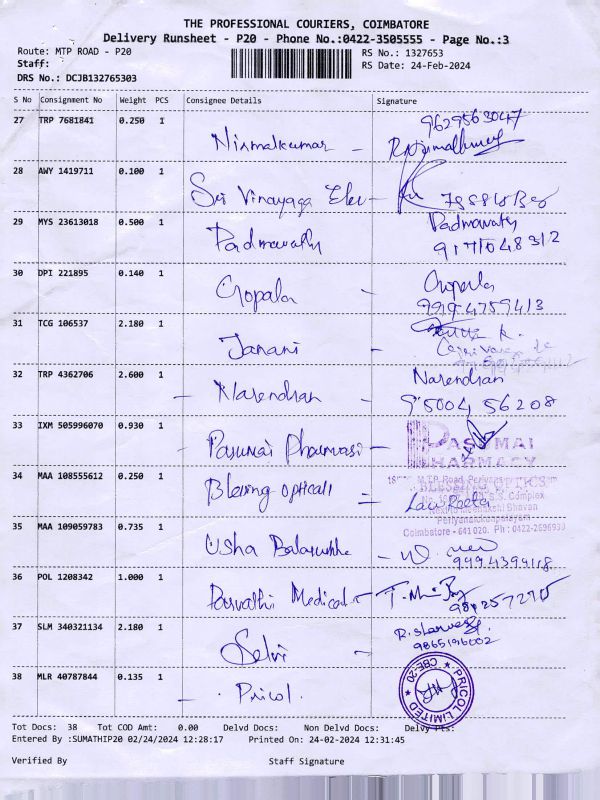 THE PROFESSIONAL COURIERS, COIMBATORE
Delivery Runsheet - P20 - Phone No.:0422-3505555 - Page No.:3
Route: MTP ROAD - P20 RS No.: 1327653
Staff: RS Date: 24-Feb-2024
DRS No.: DCJB132765303
S No Consignment No Weight PCS Consignee Details Signature
27 TRP 7681841 0.250 1 9629563047
Nirmalkumar -
28 AWY 1419711 0.100 1
Sri Vinayaga Ele
29 MYS 23613018 0.500 1 Padmavathy
Padmavathy
30 DPI 221895 0.140 1
Gopala - Gopala
9994759413
31 TCG 106537 2.180 1
Janani -
32 TRP 4362706 2.600 1 Narendran
- Narendran 95004 56208
33 IXM 505996070 0.930 1 PASUMAI
Pasumai Pharmasi - PHARMACY
34 MAA 108555612 0.250 1 M.T.P. Road, BLESSING OPTICS
Blessing opticals - S.S. Complex
35 MAA 109059783 0.735 1 Periyanaickenpalayam
Coimbatore - 641 020. Ph : 0422-2696930
Usha -
9994399118
36 POL 1208342 1.000 1
Parvathi Medical -
37 SLM 340321134 2.180 1
9865196002
Selvi
38 MLR 40787844 0.135 1 PRICOL LIMITED CBE-20
- Pricol.
Tot Docs: 38 Tot COD Amt: 0.00 Delvd Docs: Non Delvd Docs: Delvy Pts:
Entered By :SUMATHIP20 02/24/2024 12:28:17 Printed On: 24-02-2024 12:31:45
Verified By Staff Signature